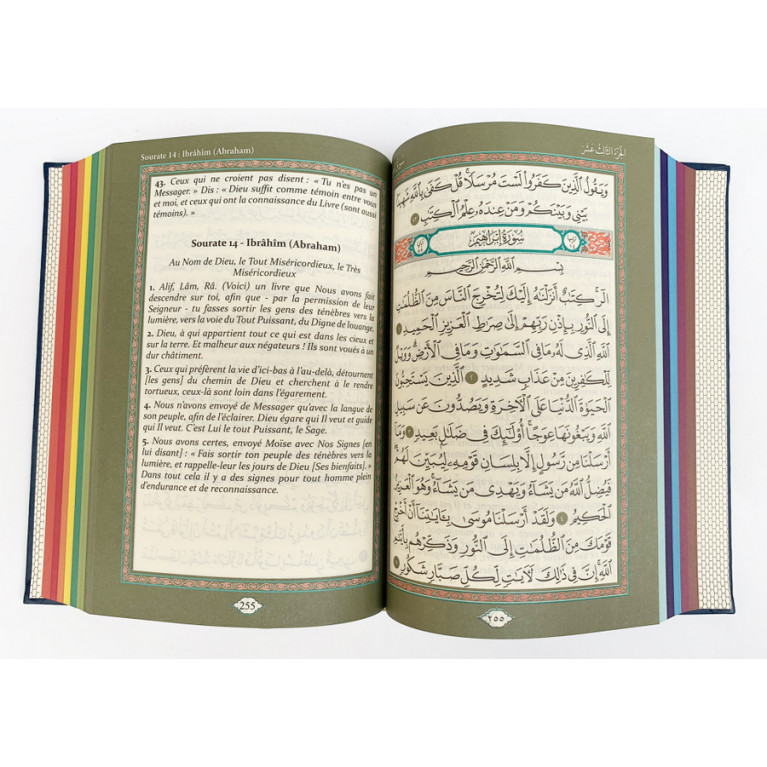 Sourate 14 : Ibrâhîm (Abraham)
43. Ceux qui ne croient pas disent : « Tu n'es pas un
Messager. » Dis : « Dieu suffit comme témoin entre vous
et moi, et ceux qui ont la connaissance du Livre (sont aussi
témoins). »
Sourate 14 - Ibrâhîm (Abraham)
Au Nom de Dieu, le Tout Miséricordieux, le Très
Miséricordieux
1. Alif, Lâm, Râ. (Voici) un livre que Nous avons fait
descendre sur toi, afin que - par la permission de leur
Seigneur - tu fasses sortir les gens des ténèbres vers la
lumière, vers la voie du Tout Puissant, du Digne de louange.
2. Dieu, à qui appartient tout ce qui est dans les cieux et
sur la terre. Et malheur aux négateurs ! Ils sont voués à un
dur châtiment.
3. Ceux qui préfèrent la vie d'ici-bas à l'au-delà, détournent
[les gens] du chemin de Dieu et cherchent à le rendre
tortueux, ceux-là sont loin dans l'égarement.
4. Nous n'avons envoyé de Messager qu'avec la langue de
son peuple, afin de l'éclairer. Dieu égare qui Il veut et guide
qui Il veut. C'est Lui le tout Puissant, le Sage.
5. Nous avons certes, envoyé Moïse avec Nos Signes [en
lui disant] : « Fais sortir ton peuple des ténèbres vers la
lumière, et rappelle-leur les jours de Dieu [Ses bienfaits]. »
Dans tout cela il y a des signes pour tout homme plein
d'endurance et de reconnaissance.
255
الجزء الثالث عشر
وَيَقُولُ ٱلَّذِينَ كَفَرُوا۟ لَسْتَ مُرْسَلًا ۚ قُلْ كَفَىٰ بِٱللَّهِ
بَيْنِى وَبَيْنَكُمْ وَمَنْ عِندَهُۥ عِلْمُ ٱلْكِتَٰبِ ٤٣
سُورَةُ إِبْرَاهِيمَ
بِسْمِ ٱللَّهِ ٱلرَّحْمَٰنِ ٱلرَّحِيمِ
الٓر ۚ كِتَٰبٌ أَنزَلْنَٰهُ إِلَيْكَ لِتُخْرِجَ ٱلنَّاسَ مِنَ ٱلظُّلُمَٰتِ
إِلَى ٱلنُّورِ بِإِذْنِ رَبِّهِمْ إِلَىٰ صِرَٰطِ ٱلْعَزِيزِ ٱلْحَمِيدِ ١
ٱللَّهِ ٱلَّذِى لَهُۥ مَا فِى ٱلسَّمَٰوَٰتِ وَمَا فِى ٱلْأَرْضِ ۗ وَوَيْلٌ
لِّلْكَٰفِرِينَ مِنْ عَذَابٍ شَدِيدٍ ٢ ٱلَّذِينَ يَسْتَحِبُّونَ
ٱلْحَيَوٰةَ ٱلدُّنْيَا عَلَى ٱلْءَاخِرَةِ وَيَصُدُّونَ عَن سَبِيلِ
ٱللَّهِ وَيَبْغُونَهَا عِوَجًا ۚ أُو۟لَٰٓئِكَ فِى ضَلَٰلٍۭ بَعِيدٍ ٣ وَمَآ
أَرْسَلْنَا مِن رَّسُولٍ إِلَّا بِلِسَانِ قَوْمِهِۦ لِيُبَيِّنَ لَهُمْ ۖ
فَيُضِلُّ ٱللَّهُ مَن يَشَآءُ وَيَهْدِى مَن يَشَآءُ ۚ وَهُوَ ٱلْعَزِيزُ
ٱلْحَكِيمُ ٤ وَلَقَدْ أَرْسَلْنَا مُوسَىٰ بِـَٔايَٰتِنَآ أَنْ أَخْرِجْ
قَوْمَكَ مِنَ ٱلظُّلُمَٰتِ إِلَى ٱلنُّورِ وَذَكِّرْهُم بِأَيَّىٰمِ
ٱللَّهِ ۚ إِنَّ فِى ذَٰلِكَ لَءَايَٰتٍ لِّكُلِّ صَبَّارٍ شَكُورٍ ٥
٢٥٥